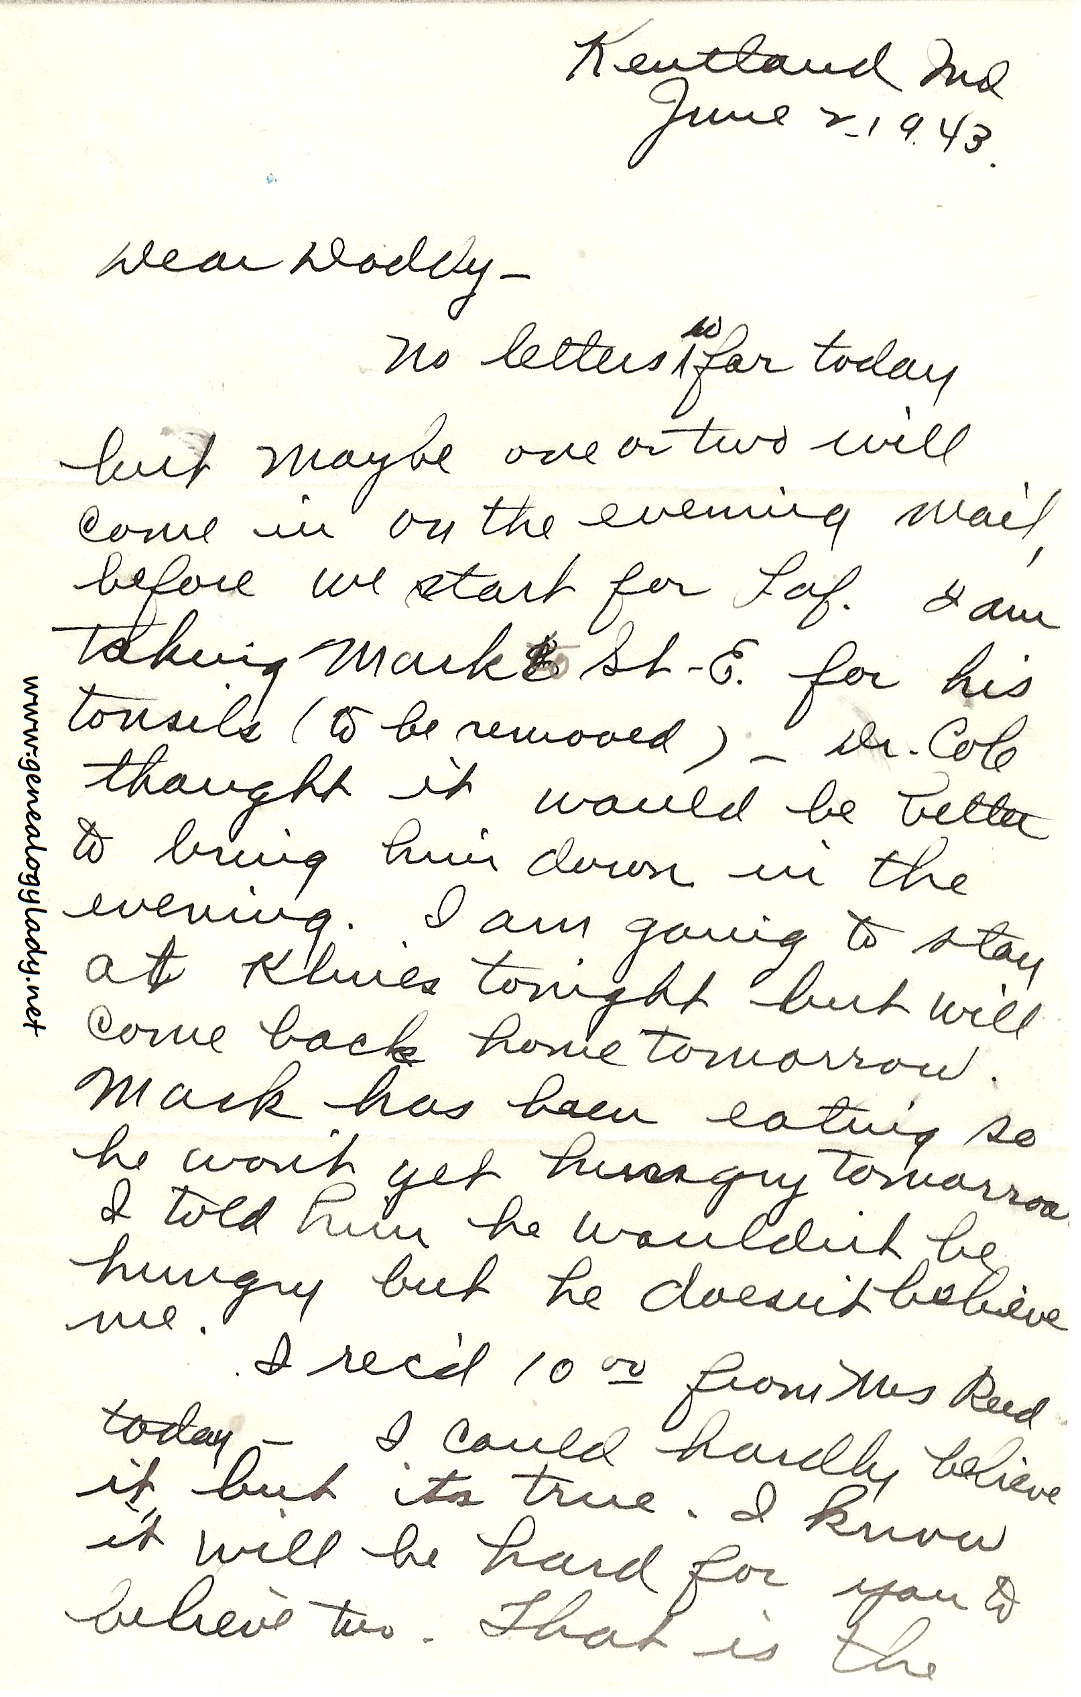 Kentland Ind
June 2, 1943.
Dear Daddy –
No letters so far today
but maybe one or two will
come in on the evening mail,
before we start for Laf. I am
taking Mark to St. E. for his
tonsils (to be removed) – Dr. Cole
thought it would be better
to bring him down in the
evening. I am going to stay
at Klines tonight but will
come back home tomorrow.
Mark has been eating so
he won't get hungry tomorrow
I told him he wouldn't be
hungry but he doesn't believe
me.
I rec'd 10 00 from Mrs Reed
today – I could hardly believe
it, but its true. I know
it will be hard for you to
believe two. That is the
www.genealogylady.net